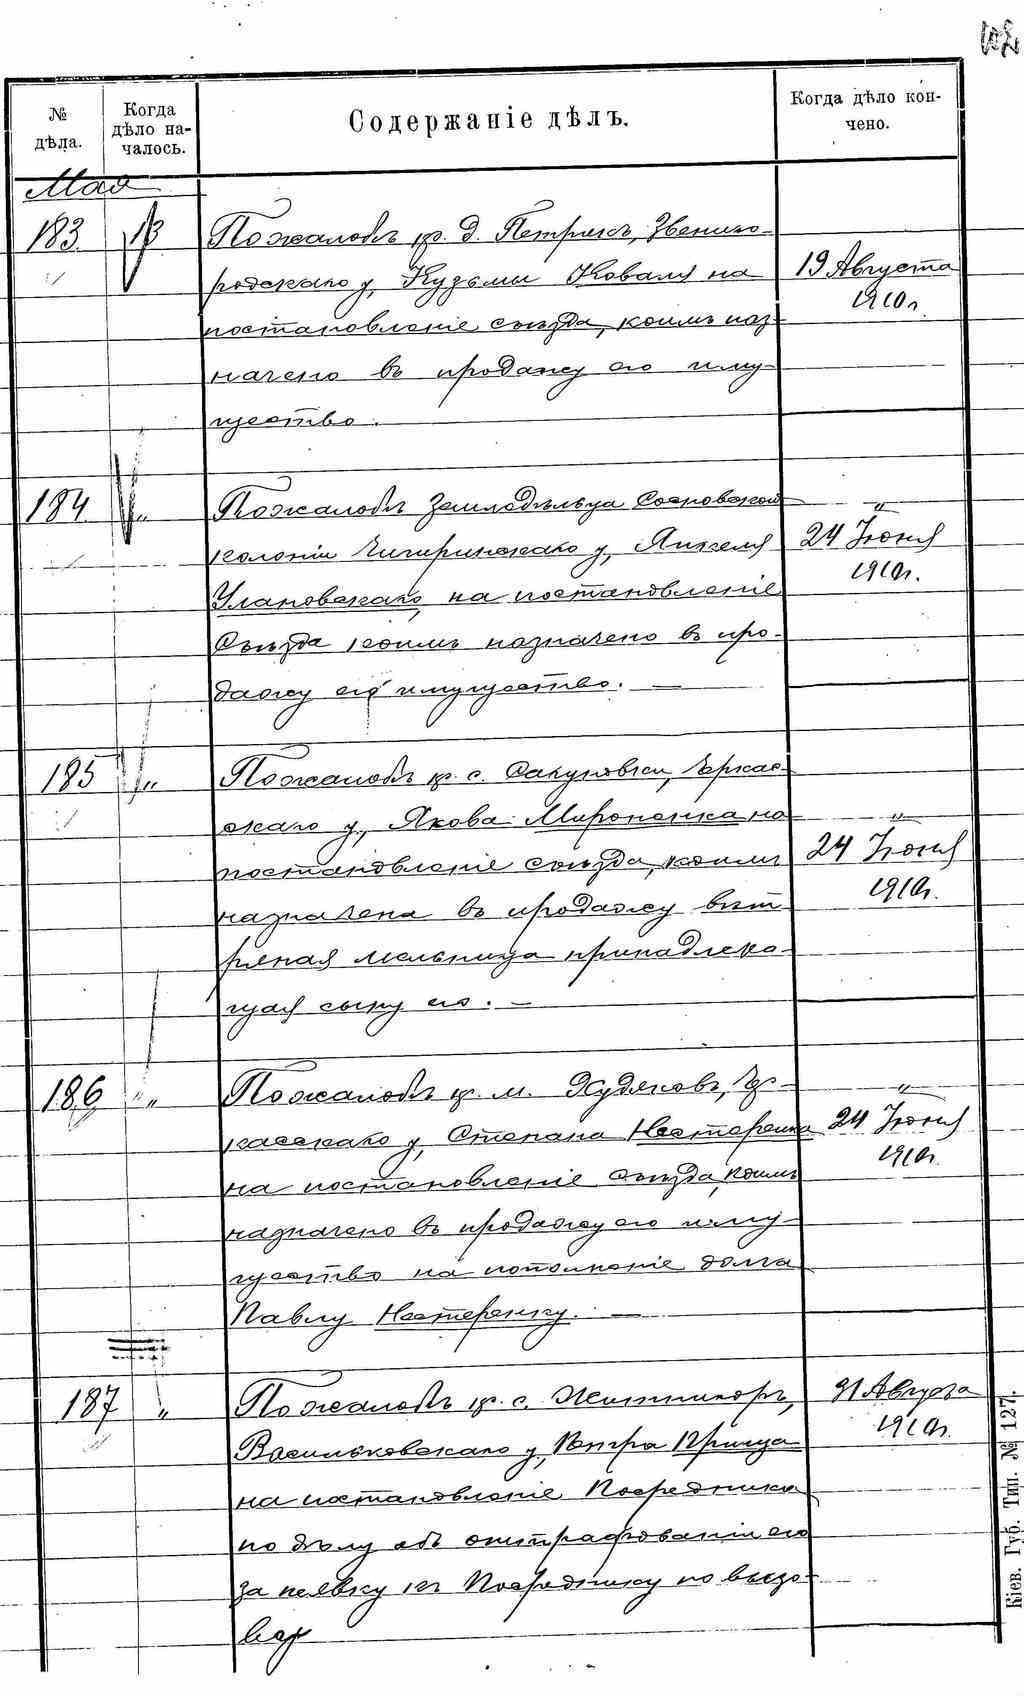 № дѣла.
Когда дѣло на-
чалось.
Содержаніе дѣлъ.
Когда дѣло кон-
чено.
Мая
183. 13 По жалобѣ кр. д. Петрикъ, Звениго-
родскаго у, Кузьмы Коваля на
постановленіе съѣзда, коимъ наз-
начено въ продажу его иму-
щество.
19 Августа
1910г.
184. „ По жалобѣ Земледѣльца Сосновской
колоніи Чигиринскаго у, Янкеля
Улановскаго, на постановленіе
Съѣзда коимъ назначено въ про-
дажу его имущество. —
„
24 Іюня
1910г.
185 „ По жалобѣ кр. с. Сакуновки, Черкас-
скаго у, Якова Мироненка на
постановленіе съѣзда, коимъ
назначена въ продажу вѣт
ряная мельница принадлежа-
щая сыну его. —
„
24 Іюня
1910г.
186 „ По жалобѣ кр. м. Худяковъ, Чер-
касскаго у, Степана Нестеренка
на постановленіе съѣзда, коимъ
назначено въ продажу его иму-
щество на пополненіе долга
Павлу Нестеренку. —
„
24 Іюня
1910г.
187 „ По жалобѣ кр. с. Житникоръ,
Васильковскаго у, Петра
на постановленіе Посредника
по дѣлу объ оштрафованіи его
за неявку къ Посреднику по вызо-
ву
31 Августа
1910г.
Кіев. Губ. Тип. № 127.